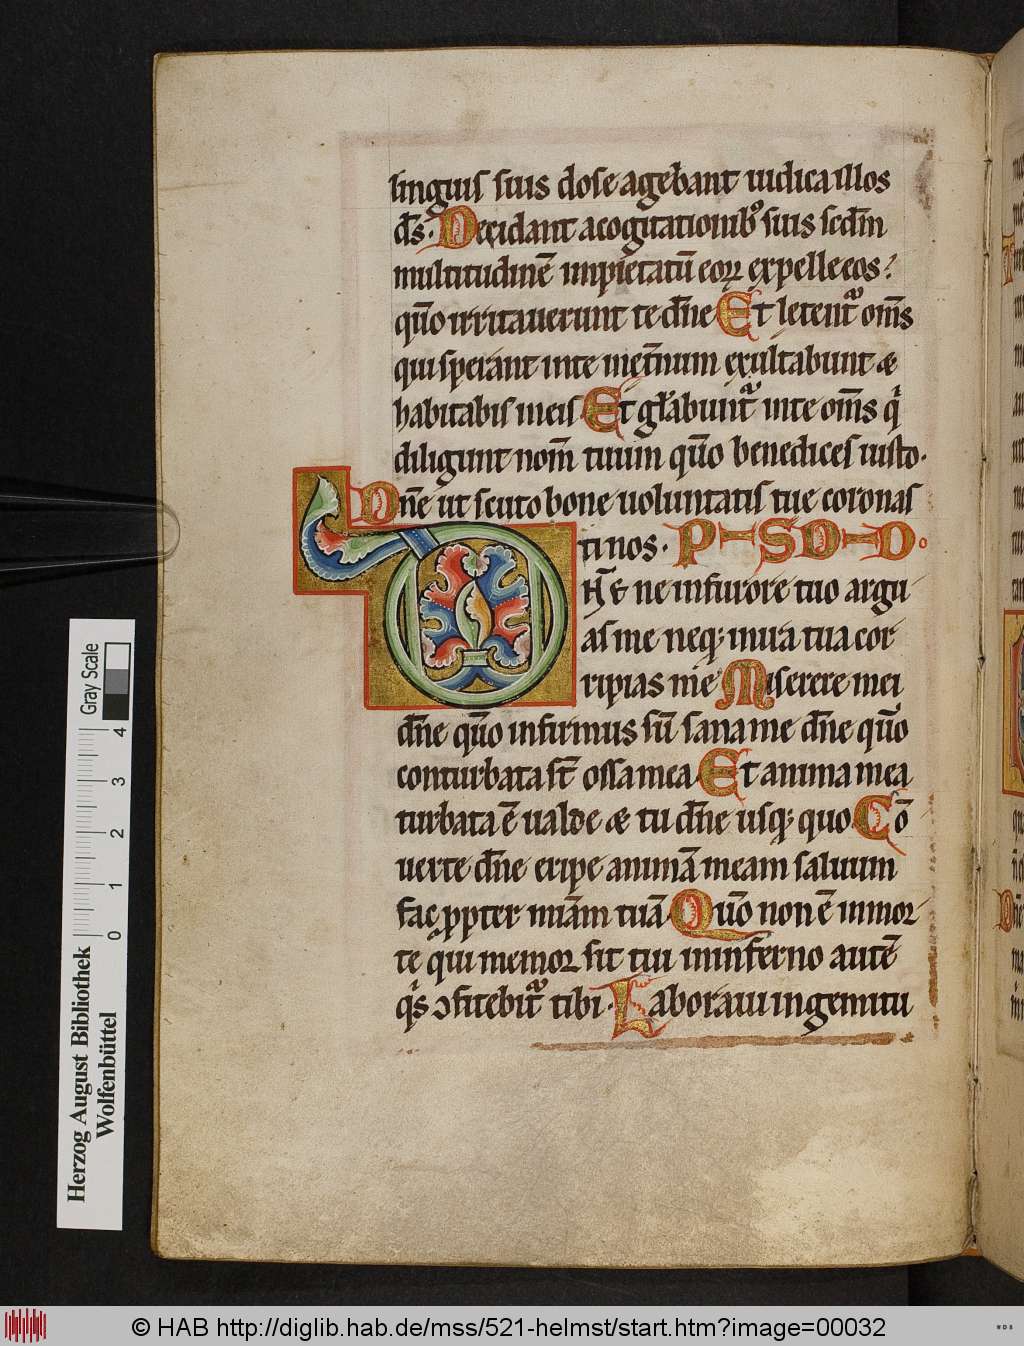 linguis suis dolose agebant iudica illos
d̄s. Decidant a cogitationibꝰ suis scd̄m
multitudinē impietatū eoꝝ expelle eos:
qūo irritauerunt te dn̄e Et letent᷑ om̄s
qui sperant in te inet̄num exultabunt &
habitabis in eis Et gl̄abunt᷑ in te om̄s qͥ
diligunt nom̄ tuum qūo benedices iusto.
Dn̄e ut scuto bone uoluntatis tue coronasti
nos. P S D D
D
n̄e ne in furore tuo arguas
me neqꝫ in ira tua corripias
me Miserere mei
dn̄e qūo infirmus sū sana me dn̄e qūo
conturbata st̄ ossa mea Et anima mea
turbata ē ualde & tu dn̄e usqꝫ quo Cō
uerte dn̄e eripe animā meam saluum
fac ꝓpter mīam tuā Qūo non ē in mor-
te qui memor sit tui in inferno autē
qͥs ↄfitebit᷑ tibi. Laboraui in gemitu
Gray Scale
0 1 2 3 4
Herzog August Bibliothek
Wolfenbüttel
© HAB http://diglib.hab.de/mss/521-helmst/start.htm?image=00032